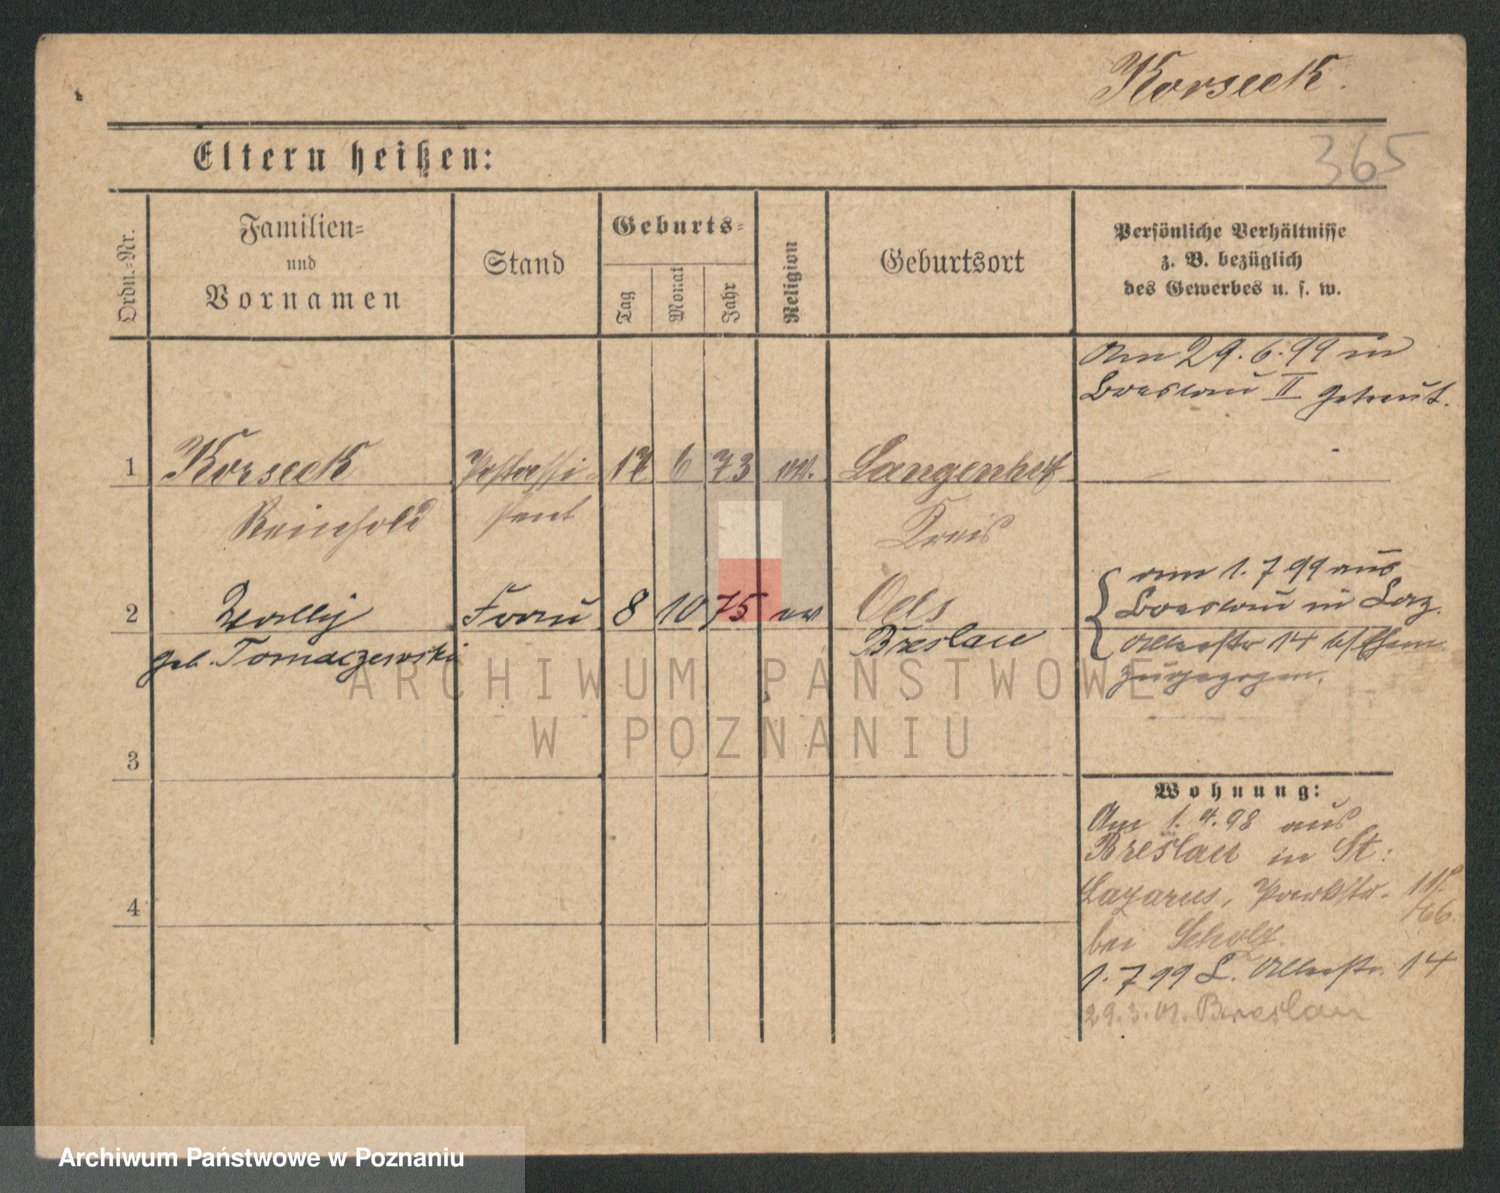 Korseck.
365
Eltern heißen:
Ordn.-Nr.
Familien-
und
Vornamen
Stand
Geburts-
Tag
Monat
Jahr
Religion
Geburtsort
Persönliche Verhältnisse
z. B. bezüglich
des Gewerbes u. s. w.
Am 29.6.99 in
Breslau II getraut.
1 Korseck Postassi- 17 6 73 ev. Langenhof
Reinhold stent Kreis
Oels
2 Wally Frau 8 10 75 ev Breslau
geb. Tomaczewski
am 1.7 99 aus
Breslau in Laz.
14
zugezogen.
3
4
Wohnung:
Am 1.4.98 aus
Breslau in St:
Lazarus, Parkstr.
bei Scholz.
1.7 99 L. 14
29.3.01. Breslau
ARCHIWUM PAŃSTWOWE
W POZNANIU
Archiwum Państwowe w Poznaniu